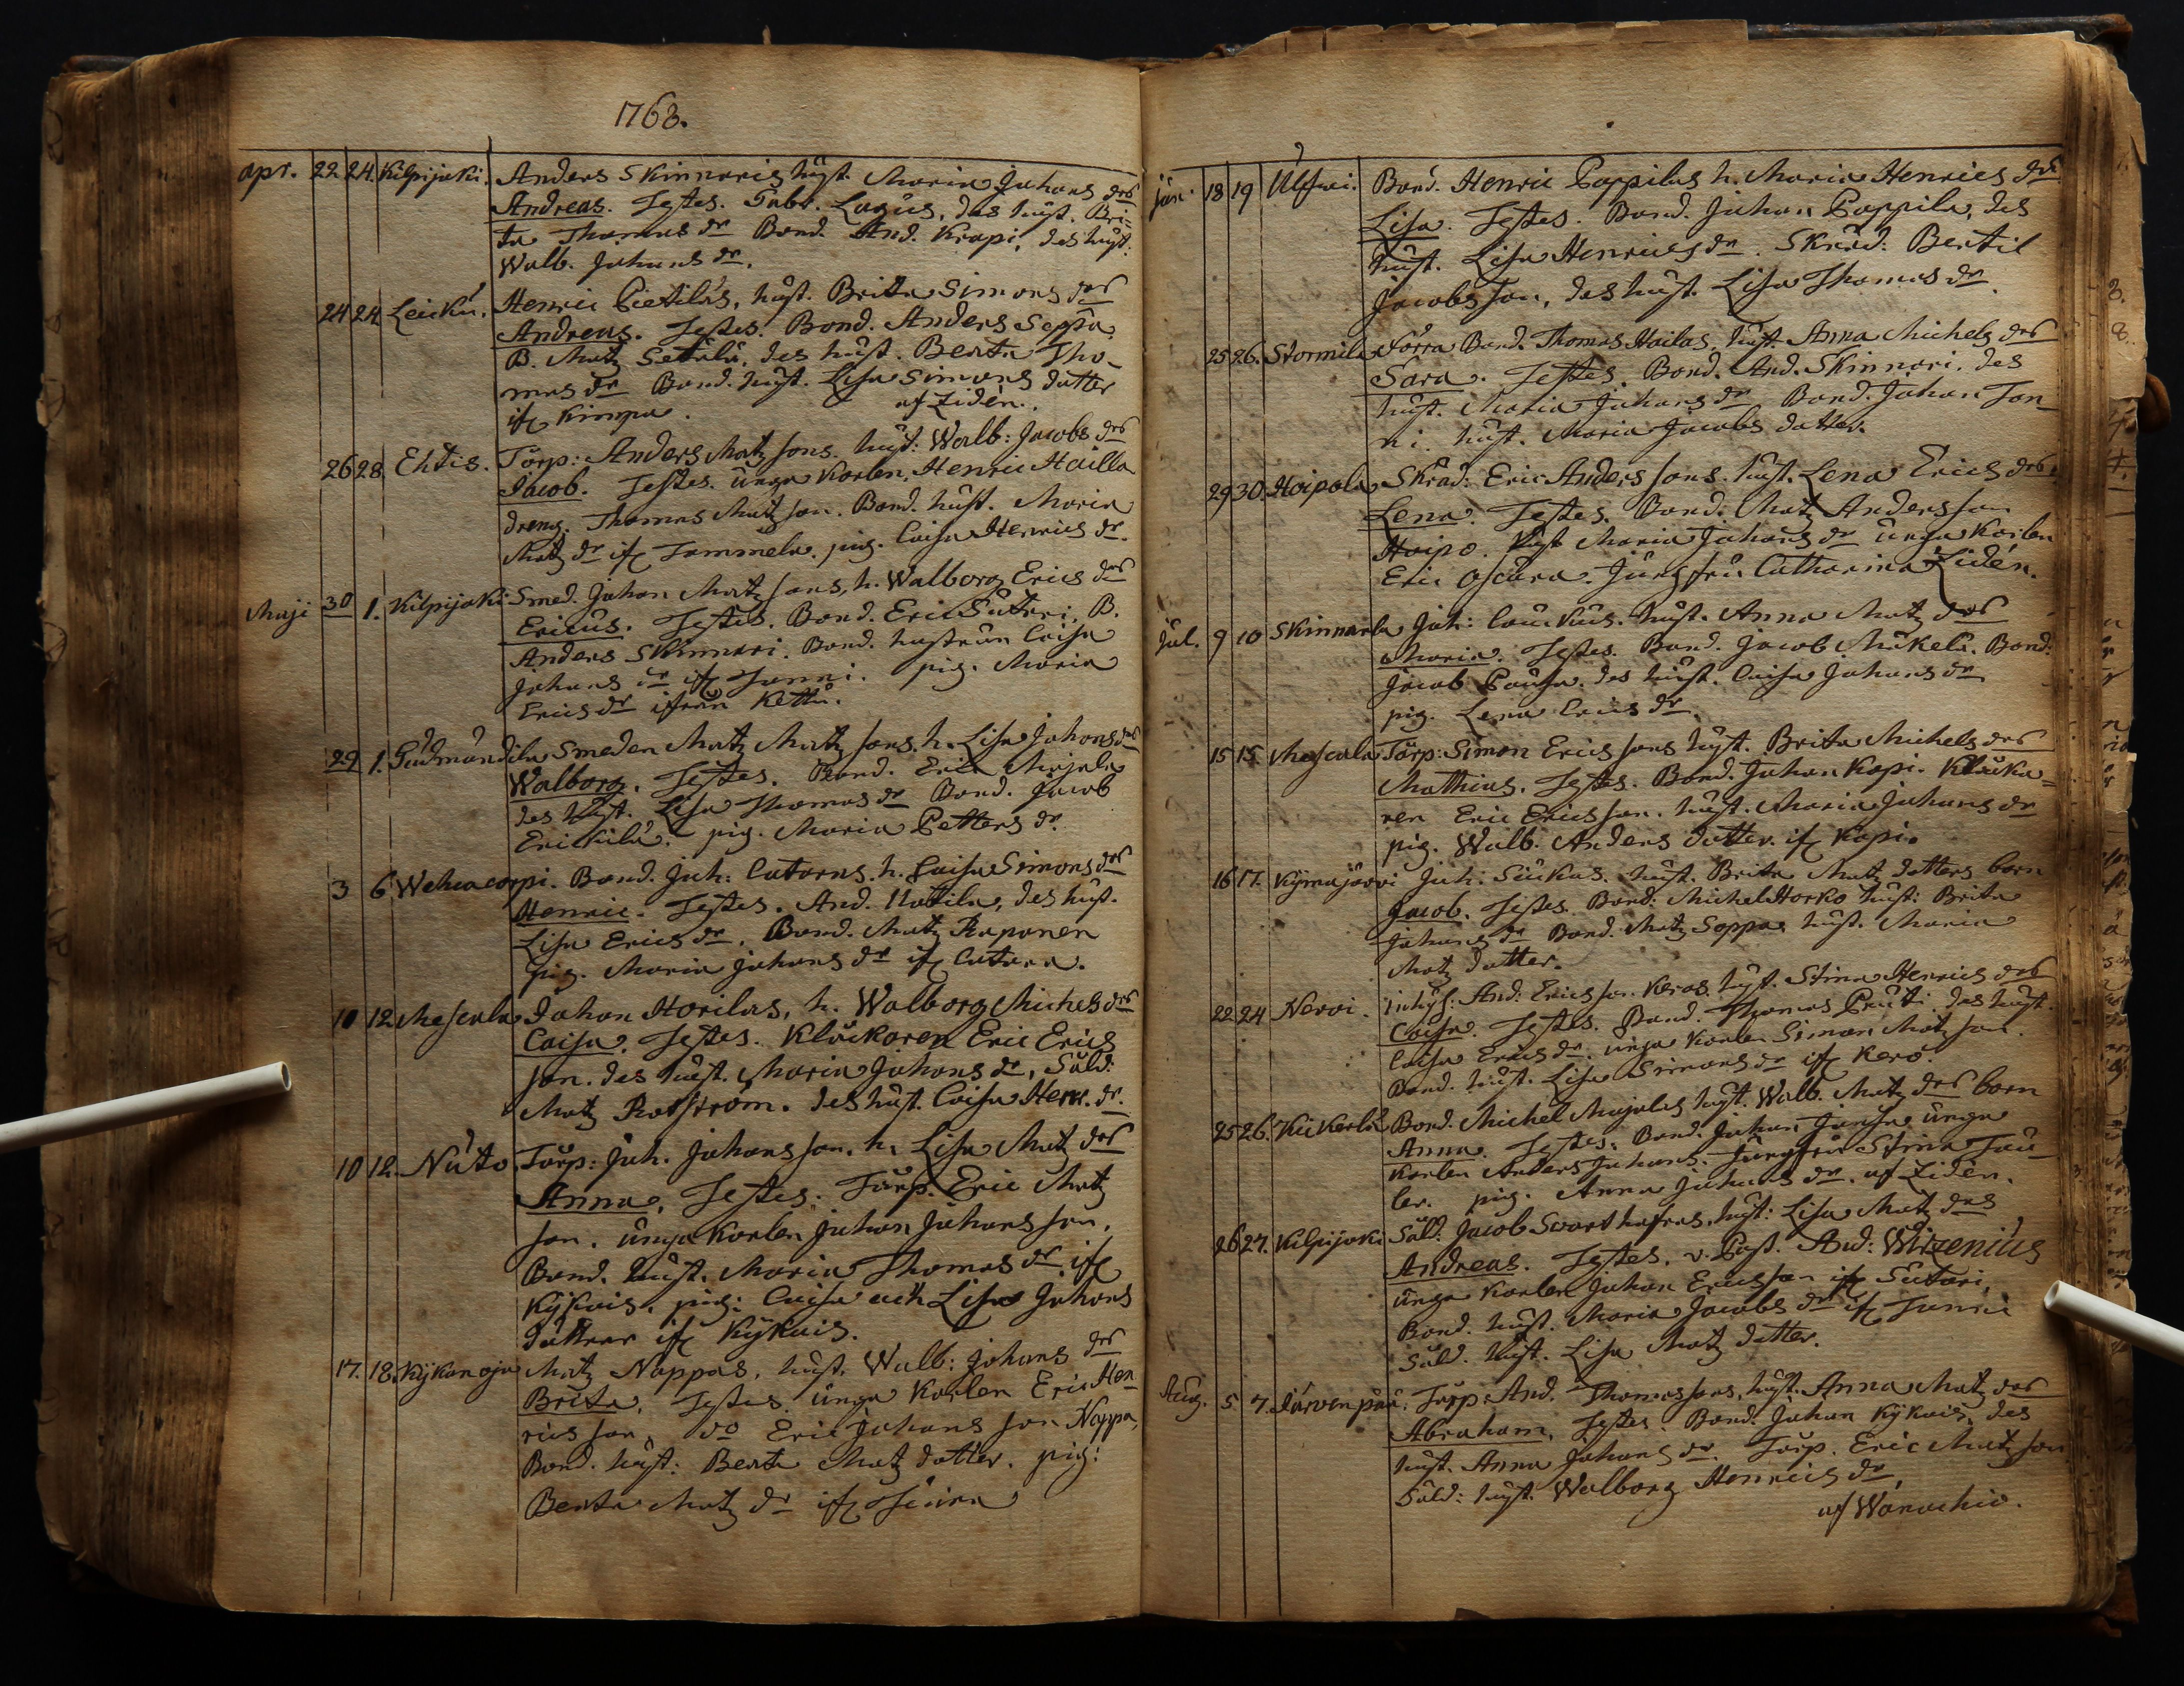 1763.
apr. 22 24. Kilpijoki. Anders Skinnaris hust. Maria Johans drs
Andreas. Testes. Gabr. Lagus, des hust. Bri-
ta Thomas dr Bond. And. Krapi, des hust.
Walb. Johans dr.
24 24 Leickü. Henric Pietilas, hust. Brita Simons drs
Andreas. Testes. Bond. Anders Seppä
B. Matz Setälä, des hust. Beata Tho-
mas dr Bond. hust. Lisa Simons datter
ifr Kimpa. af Lidén.
26 28. Ehtis. Torp: Anders Matz sons. hust: Walb: Jacobs drs
Jacob. Testes. unga Karlen, Henric Hailla
dreng. Thomas Matz son. Bond. hust. Maria
Matz dr ifr Tammela. pig. Caisa Henrics dr.
Maji 30 1. Kilpijoki Smed. Johan Matz sons, h. Walborg Erics drs
Ericus. Testes. Bond. Eric Sutari, B.
Anders Skinnari. Bond. hustrun Caisa
Johans dr ifr Junni. pig. Maria
Erics dr ifrån Kettu.
29 1. Gudmundila Smeden Matz Matz sons. h. Lisa Johans drs
Walborg. Testes. Bond. Eric Majala
des hust. Lisa Thomas dr Bond. Jacob
Erickilä. pig. Maria Petters dr.
3 6 Wehacorpi. Bond. Joh: Catarns. h. Caisa Simons drs
Henric. Testes. And. Uotila, des hust.
Lisa Erics dr. Bond. Matz Raponen
pig. Maria Johans dr ifr Catara.
10 12. Mascala Johan Horilas, h. Walborg Michels drs
Caisa. Testes. Klåckaren Eric Erics
son. des hust. Maria Johans dr, Sold:
Matz Rotström. des hust. Caisa Henr. dr.
10 12. Nuto Torp: Joh. Johans son. h. Lisa Matz drs
Anna. Testes. Torp. Eric Matz
son. unga Karlen Johan Johans son.
Bond. hust. Maria Thomas dr ifr
Kykais. pig: Caisa och Lisa Johans
dattrar ifr Kykais.
17. 18. Kykänoja Matz Nappas, hust. Walb: Johans drs
Brita. Testes. unga Karlen Eric Hen
rics son, do Eric Johans son Nappa,
Bond. hust: Beata Matz datter. pig:
Beata Matz dr ifr
jun. 18 19 Ulfswi. Bond. Henric Pappilas h. Maria Henrics drs
Lisa. Testes. Bond. Johan Pappila, des
hust. Lisa Henrics dr. Skräd: Bertil
Jacobs son, des hust. Lisa Thomas dr.
25 26. Stormila Förra Bond. Thomas Hailas, hust. Anna Michels drs
Sara. Testes. Bond. And. Skinnari, des
hust. Maria Johans dr Bond. Johan Jon-
ni hust. Maria Jacobs datter.
29 30. Hoipola Skräd: Eric Anders sons. hust. Lena Erics drs
Lena. Testes. Bond. Matz Anders son
Hoipo. hust Maria Johans dr unga Karlen
Eric Ojcara. Jungfru Catharina Lidén.
Jul. 9 10 Skinnarla Joh: Caukus. hust. Anna Matz drs
Maria. Testes. Bond. Jacob Mäkelä. Bond:
Jacob Pausa. des hust. Caisa Johans dr
pig. Lena Erics dr.
15 15 Mascala Torp: Simon Erics sons hust. Brita Michels drs
Mathias. Testes. Bond. Johan Kapi. Klåcka-
ren Eric Ericsson. hust. Maria Johans dr
pig. Walb. Anders datter. ifr Kapi.
16 17. Kymajärvi Joh: Suikas. hust. Brita Matz dotters barn
Jacob. Testes. Bond: Michel Horko hust: Brita
Johans dr Bond. Matz Soppas hust. Maria
Matz datter.
22 24 Neroi. inhys: And: Erics son Keros. hust. Stina Henrics drs
Caisa. Testes. Bond. Thomas Pruti. des hust.
Caisa Erics dr. unga Karlen Simon Matz son.
Bond. hust. Lisa Simons dr ifr Kero.
25 26. Kukerla Bond. Michel Majalas hust. Walb. Matz drs barn
Anna. Testes. Bond. Johan Jansa unga
Karlen Anders Johans. Jungfru Stina Tau
ler. pig. Anna Johans dr. af Lidén.
26 27. Kilpijoki Sold: Jacob Swarthafras. hust: Lisa Matz drs
Andreas. Testes. v. Past. And: Wirzenius
unga Karlen Johan Ericsson ifr Sutari,
Bond. hust. Maria Jacobs dr ifr Junni
Sold. hust. Lisa Matz datter.
Aug. 5 7. Järvenpää. Torp. And. Thomas sons, hust. Anna Matz drs
Abraham. Testes. Bond. Johan Kykais, des
hust. Anna Johans dr. Torp. Eric Matz son
Sold: hust. Walborg Henrics dr.
af Wånachio.